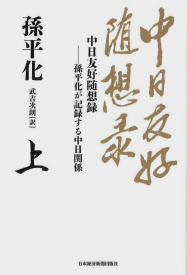 中日友好
随想录
中日友好随想録
――孫平化が記録する中日関係
孫平化
武吉次朗[訳]
上
日本経済新聞出版社